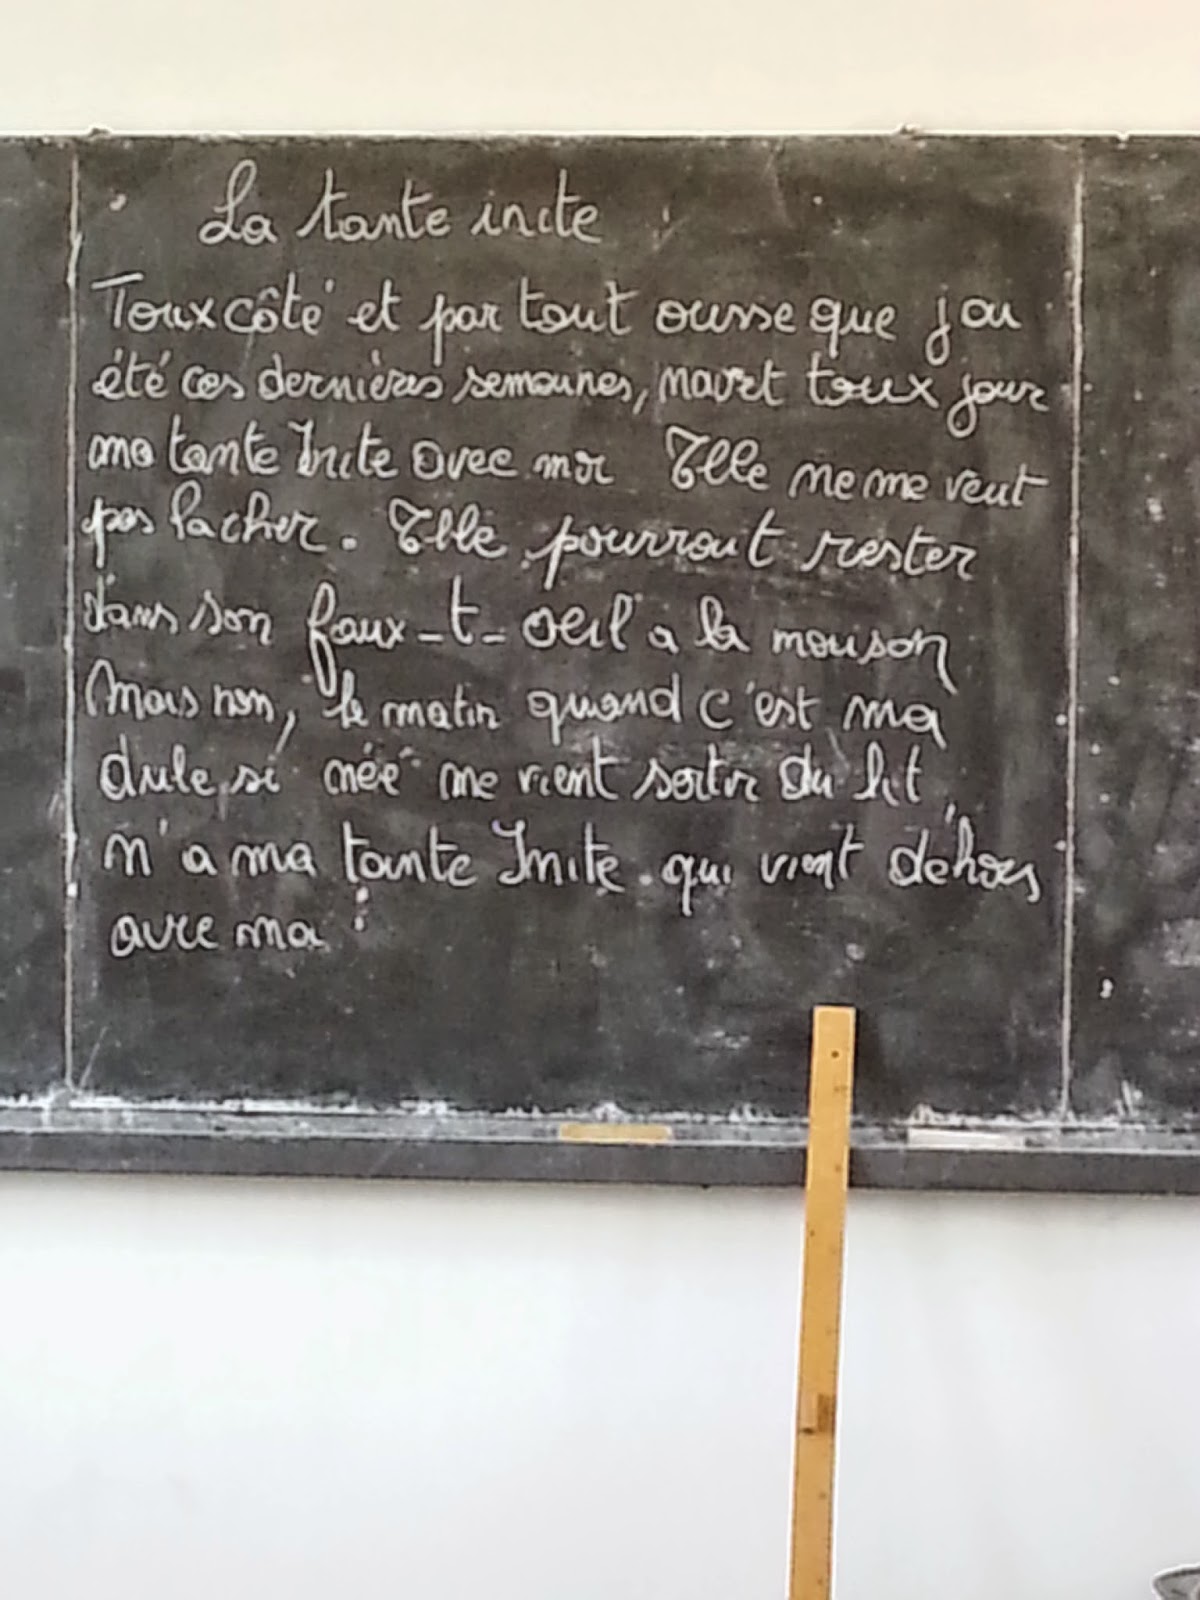 La tante inite
Toux côté et par tout ousse que j'ai
été ces dernières semaines, navet toux jour
ma tante Inite avec moi Elle ne me veut
pas lacher. Elle pourrait rester
dans son faux-t-oeil a la maison
Mais non, le matin quand c'est ma
dule si née me vient sortir du lit,
n'a ma tante Inite qui vient déhors
avec ma